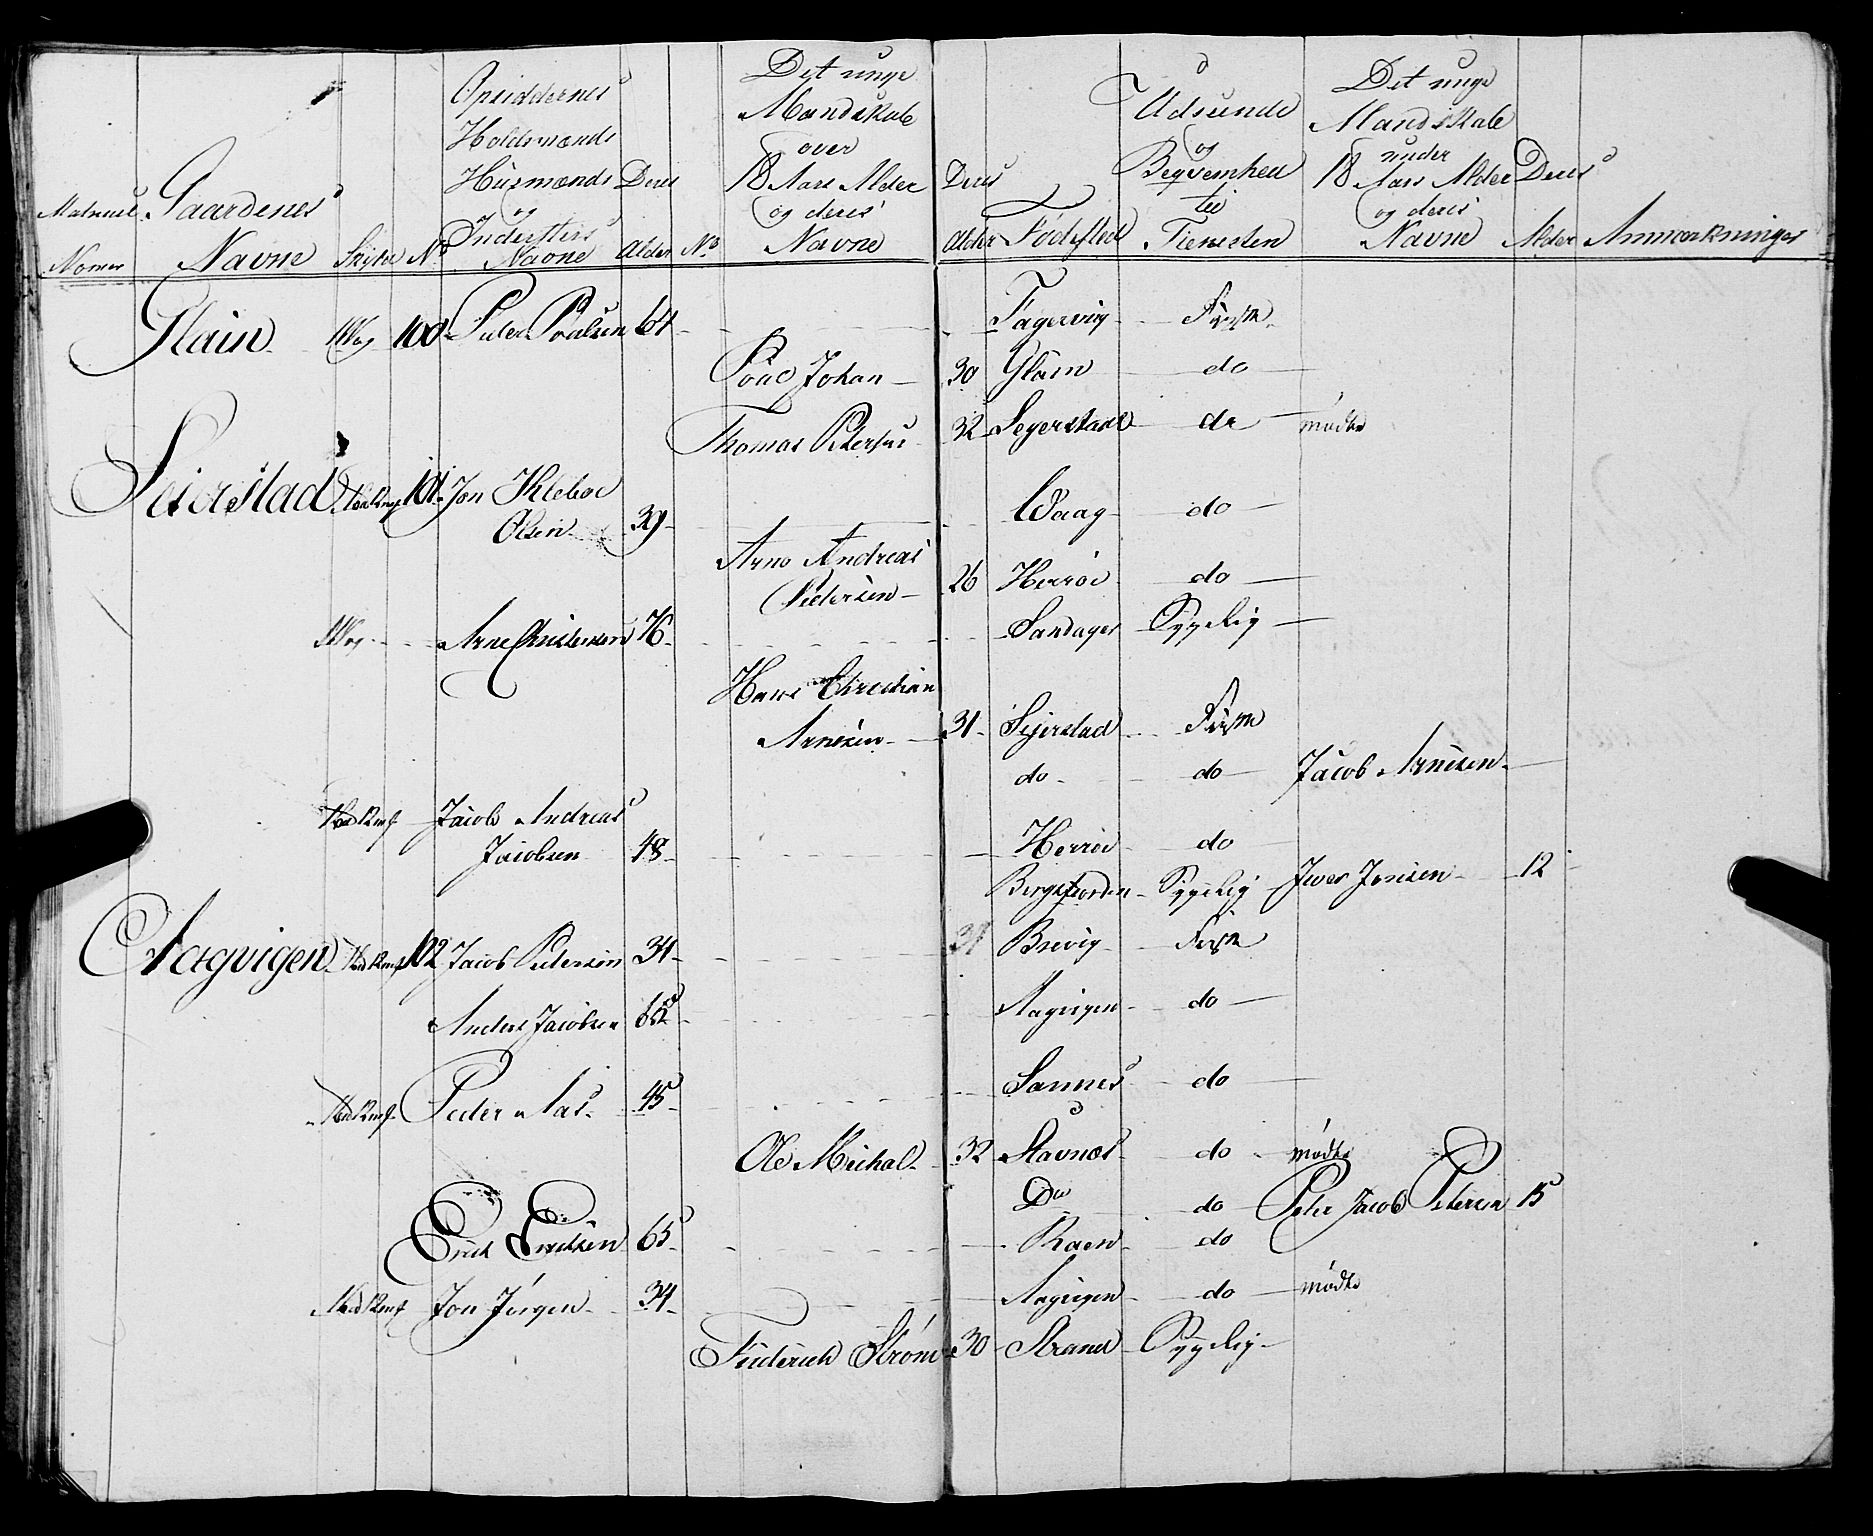 Matricul Nomer
Gaardenes Navne
Stykr
No
Opsiddernes Holdsmænds Huusmænds og Inderster Navne
Deres Alder
No
Det unge Mandskab over 18 Aars Alder og deres Navne
Deres Alder
Fødested
Udseende og Beqvemhed til Tienesten
Det unge Mandskab under 18 Aars Alder og deres Navne
Deres Alder
Anmærkninger
Glain 100 Peder Poulsen 64 Fagervig Første
Poul Johan 30 Glain do
Thomas Petersen 32 Segerstad do mødte
Seierstad 101 Jon Kleboe
Olsen 39 Waag do
Arno Andreas
Pedersen 26 Herrøe do
Arne Christensen 76 Sandager Sygelig
Hans Christian
Arnesen 31 Sejerstad Første
do do Jacob Arnesen
Jacob Andreas
Jacobsen 48 Herrøe do
Bergsfiorden Sygelig Iver Jensen 12
Aagvigen 102 Jacob Pedersen 34 31 Brevig Første
Anders Jacobsen 65 Aagvigen do
Peder Aas 45 Sannes do
Ole Michal 32 Stavnæs do mødte
Do do Peter Jacob Petersen 15
Erich Erichsen 65 Raen do
Jon Jørgen 34 Aagvigen do mødte
Friderich Strøm 30 Strand Sygelig